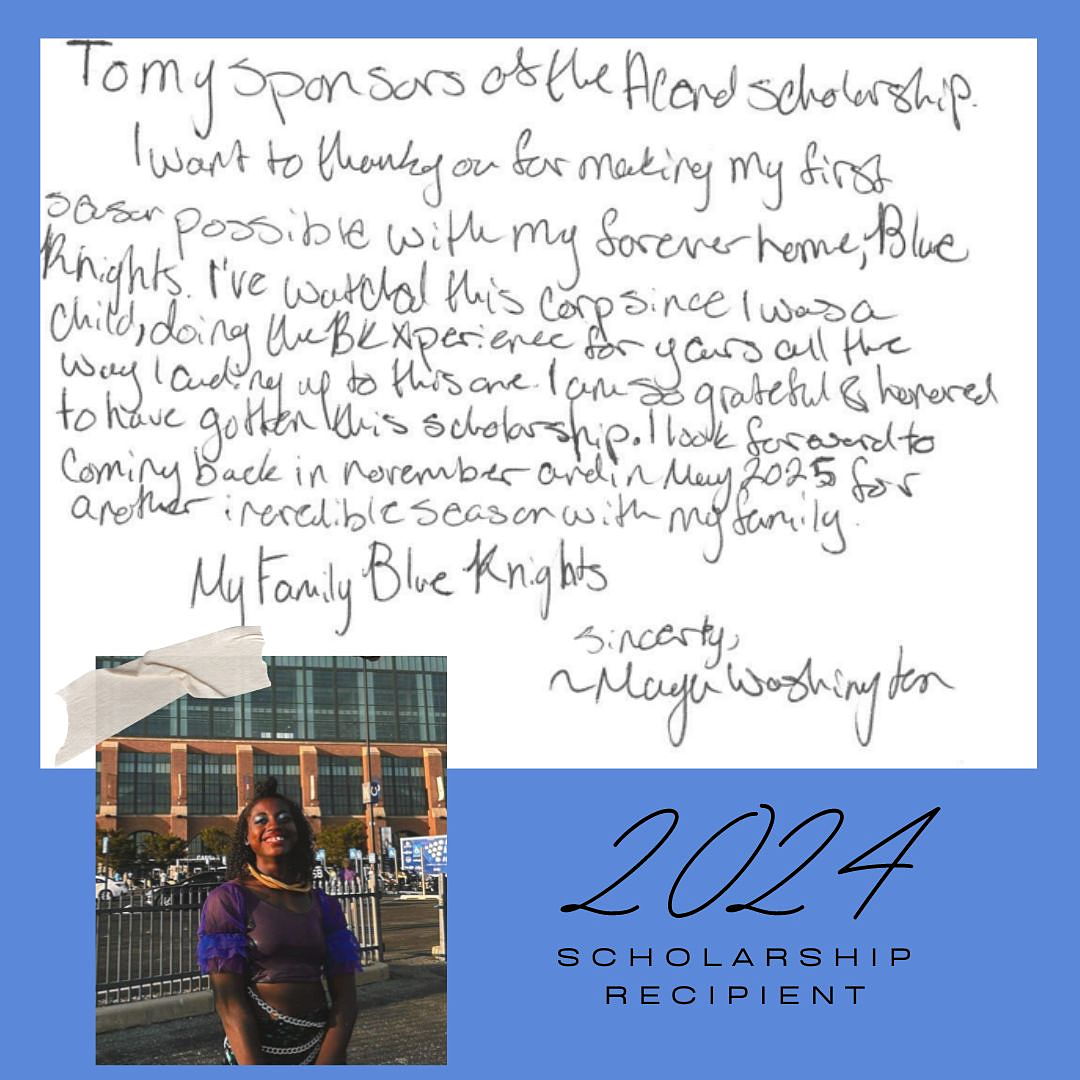 To my sponsors of the Acord scholarship.
I want to thank you for making my first
season possible with my forever home, Blue
Knights. I've watched this corp since I was a
child, doing the BK Xperience for years all the
way leading up to this one. I am so grateful & honored
to have gotten this scholarship. I look forward to
coming back in november and in May 2025 for
another incredible season with my family.
My Family Blue Knights
sincerly,
~Maya Washington
2024
SCHOLARSHIP
RECIPIENT